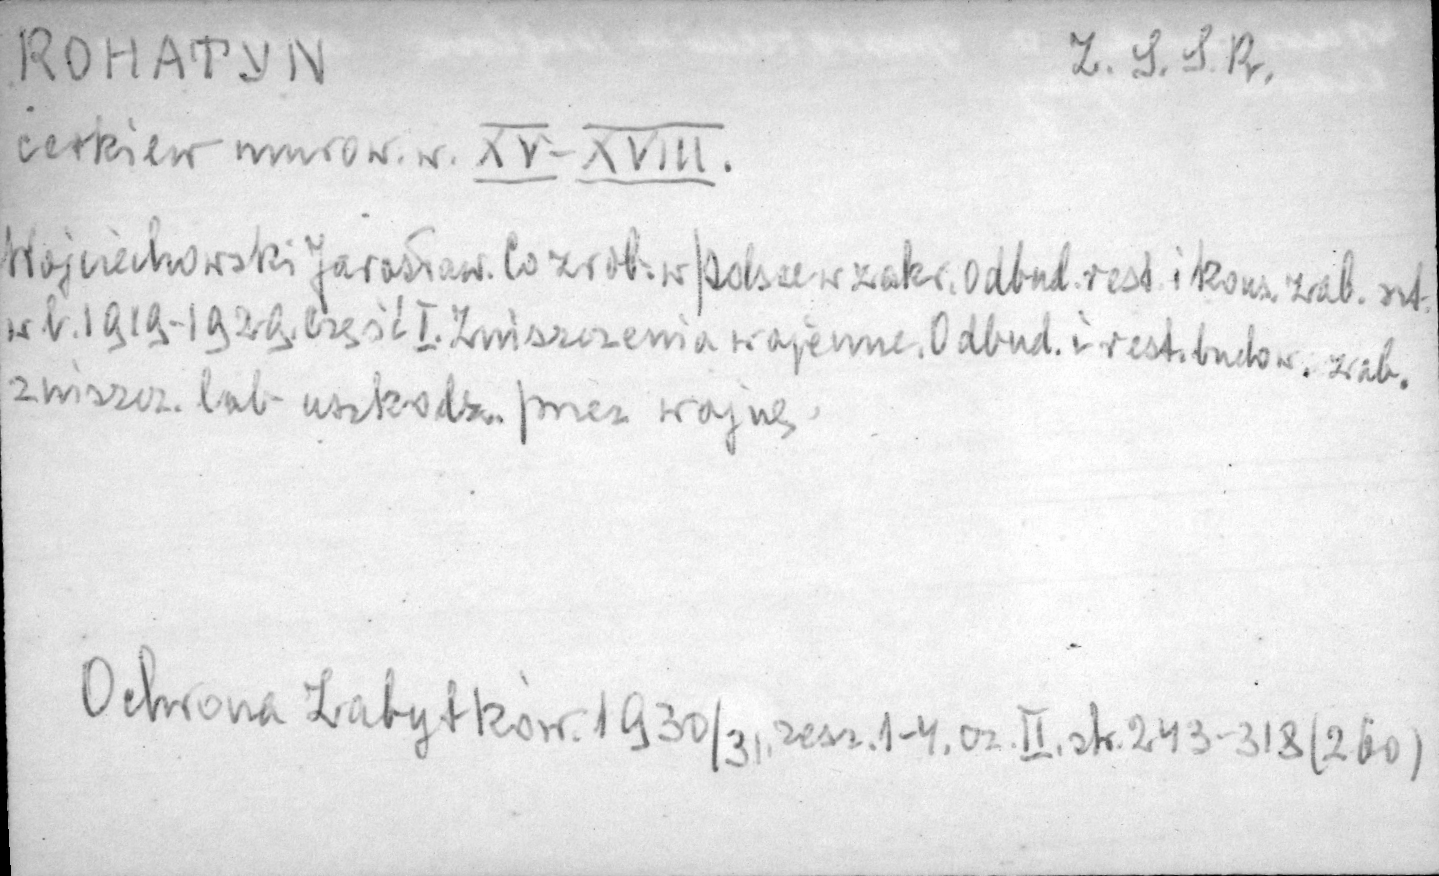 ROHATYN Z.S.S.R.
cerkiew murow. w. XV-XVIII.
Wojciechowski Jarosław. Co zrob. w Polsce w zakr. odbud. rest. i kons. zab. szt.
w l. 1919-1929. Część I. Zniszczenia wojenne. Odbud. i rest. budow. zab.
zniszcz. lub uszkodz. przez wojnę.
Ochrona Zabytków. 1930/31. zesz. 1-4, cz. II, str. 243-318 (260)